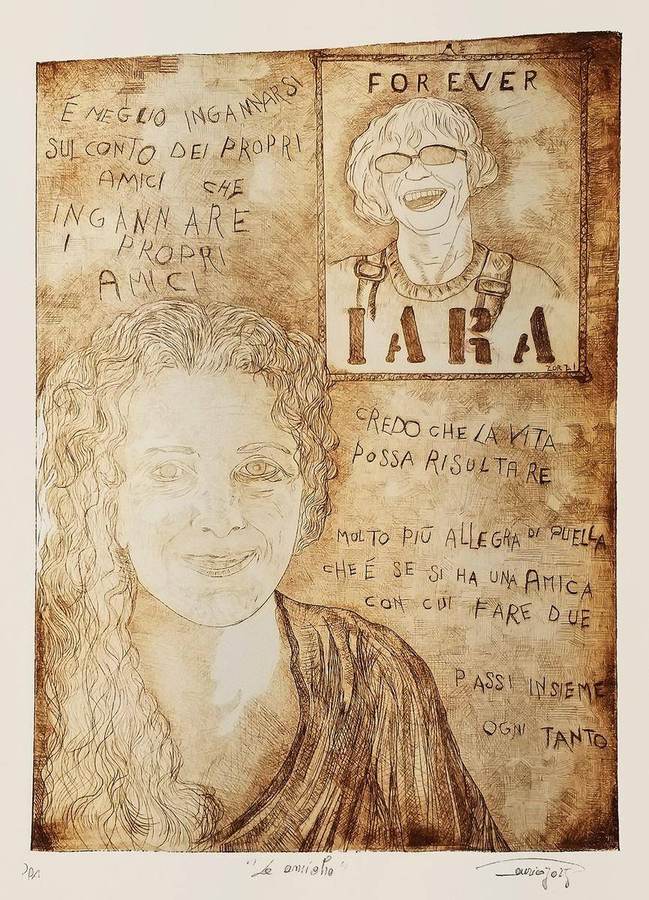 É MEGLIO INGANNARSI
SUL CONTO DEI PROPRI
AMICI CHE
INGANNARE
I PROPRI
AMICI
FOR EVER
IARA
ZORZI
CREDO CHE LA VITA
POSSA RISULTARE
MOLTO PIÙ ALLEGRA DI QUELLA
CHE É SE SI HA UNA AMICA
CON CUI FARE DUE
PASSI INSIEME
OGNI TANTO
"Le amiche"